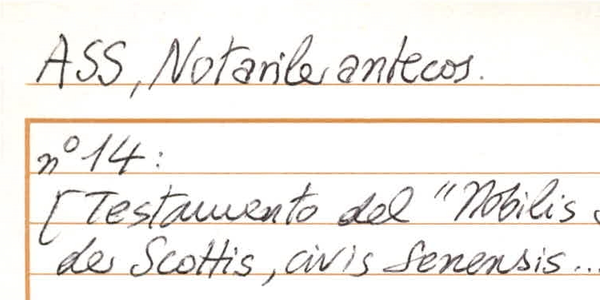 ASS, Notarile antecos.
n° 14:
[Testamento del "Nobilis
de Scottis, civis senensis...